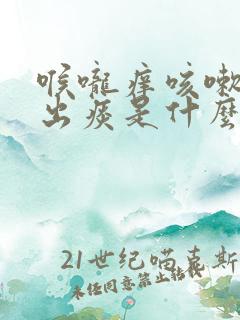 喉嚨痒咳嗽
出痰是什麼
21世纪喵喜斯
未经同意禁止转载